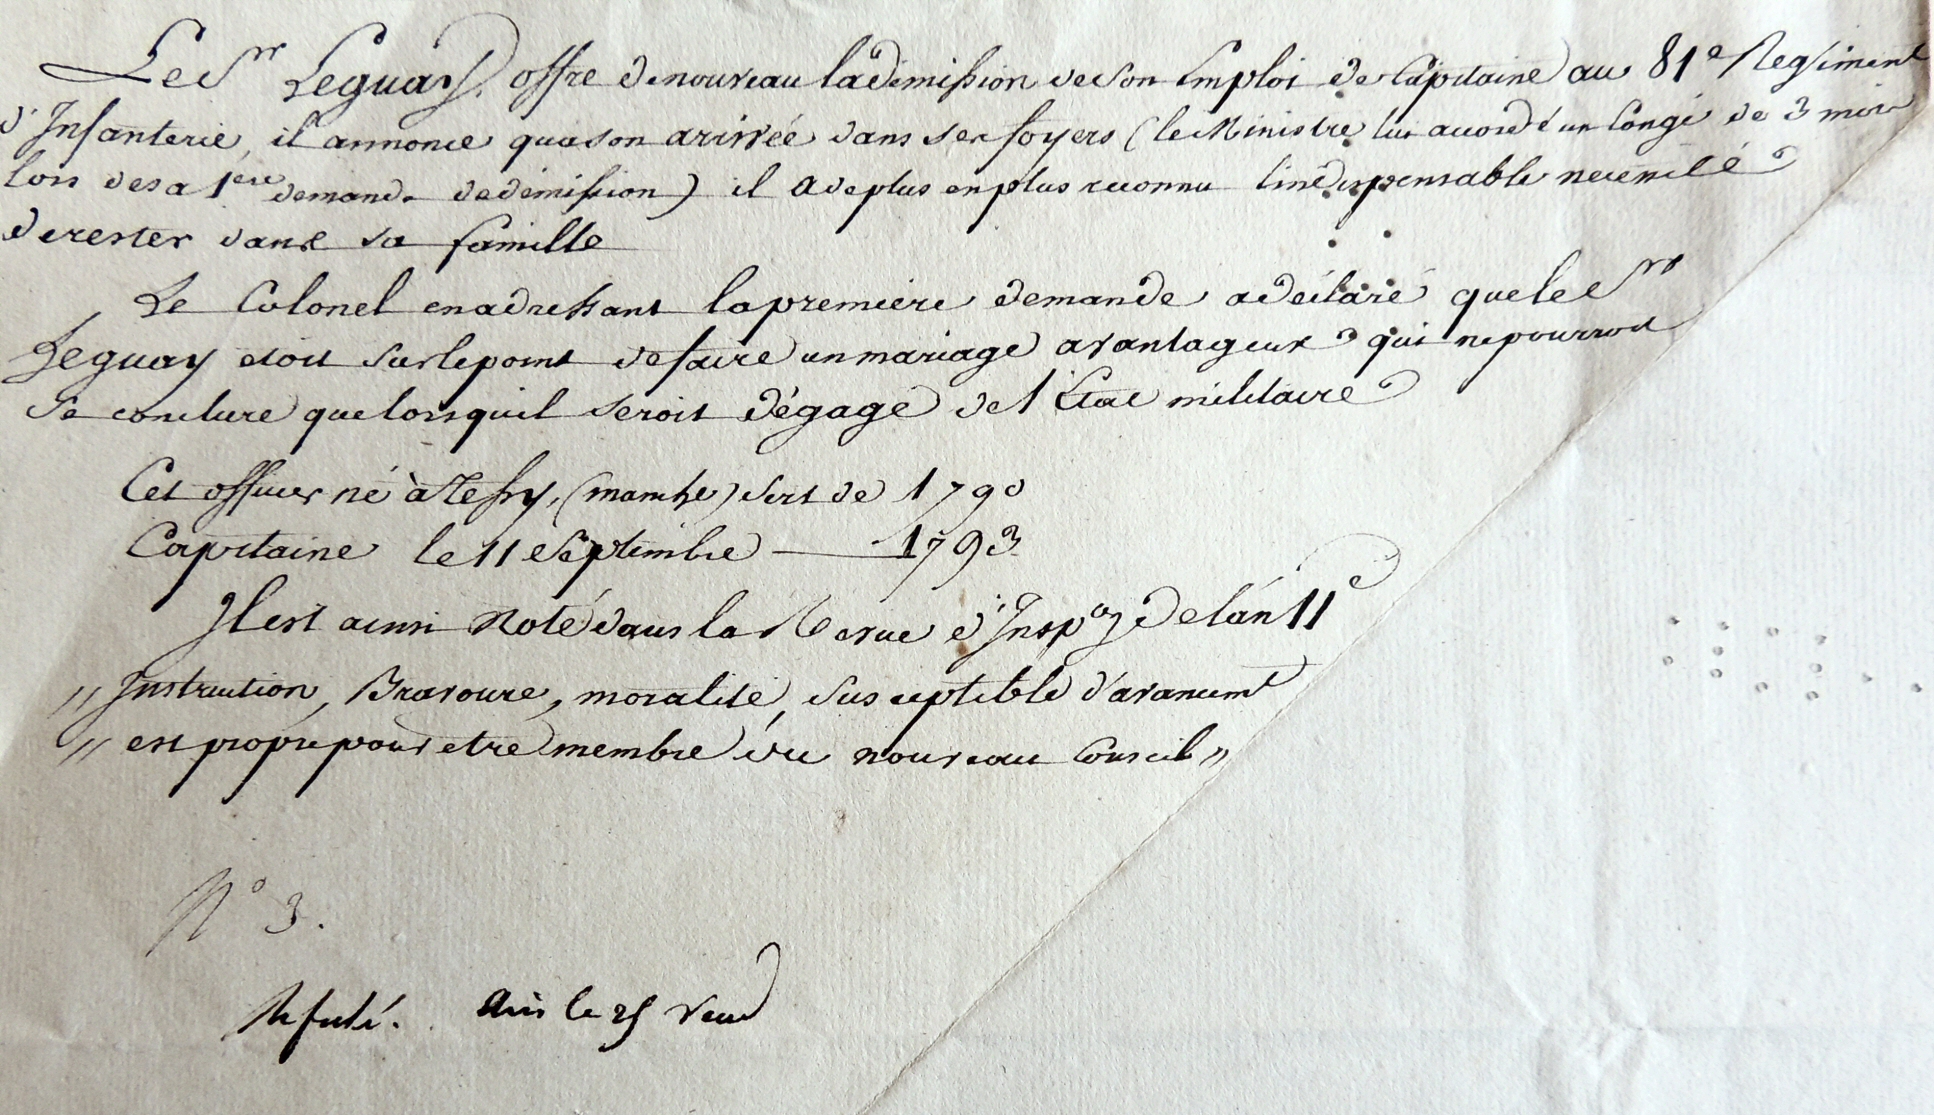 Le Sr Leguay, offre de nouveau la démission de son Emploi de Capitaine au 81e Regiment
d'Infanterie, il annonce qu'a son arrivée dans ses foyers (le Ministre lui a accordé un Congé de 3 mois
lors de sa 1ere demande de démission) il a de plus en plus reconnu l'indispensable necessité
de rester dans sa famille
Le Colonel en adressant la première demande a déclaré que le Sr
Leguay etoit sur le point de faire un mariage avantageux qui ne pourroit
se conclure que lorsqu'il seroit dégagé de l'Etat militaire
Cet officier né à Tessy, (manche) sert de 1790
Capitaine le 11 Septembre — 1793
Il est ainsi Noté dans la Revue d'Inspon de l'an 11e
" Instruction, Bravoure, moralité, susceptible d'avancemt
" est propre pour etre membre du nouveau Conseil "
N° 3.
Refusé. Avis le 25 Vend